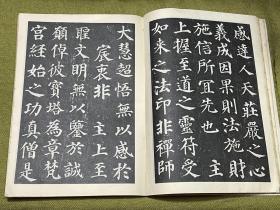 感達人天莊嚴之心
義成因果則法施財
施信所宜先也 主
上握至道之靈符受
如来之法印非禪師
大慧超悟無以感於
宸衷非 主上至
聖文明無以鑒於誠
願倬彼寶塔為章梵
宮經始之功真僧是